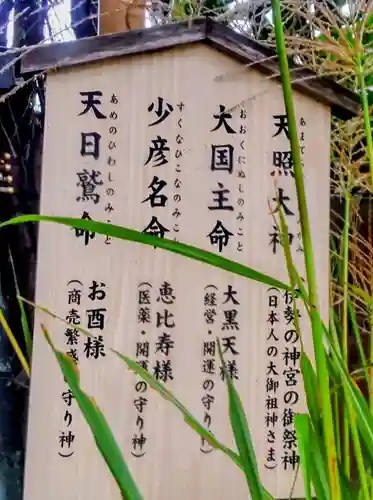 天照大神
あまて
伊勢の神宮の祭神
(日本人の大御祖神さま)
大国主命
おおくにぬしのみこと
大黒天様
(経営・開運の守り神)
少彦名命
すくなひこなのみこと
恵比寿様
(医薬・開運の守り神)
天日鷲命
あめのひわしのみこと
お酉様
(商売繁
の守り神)